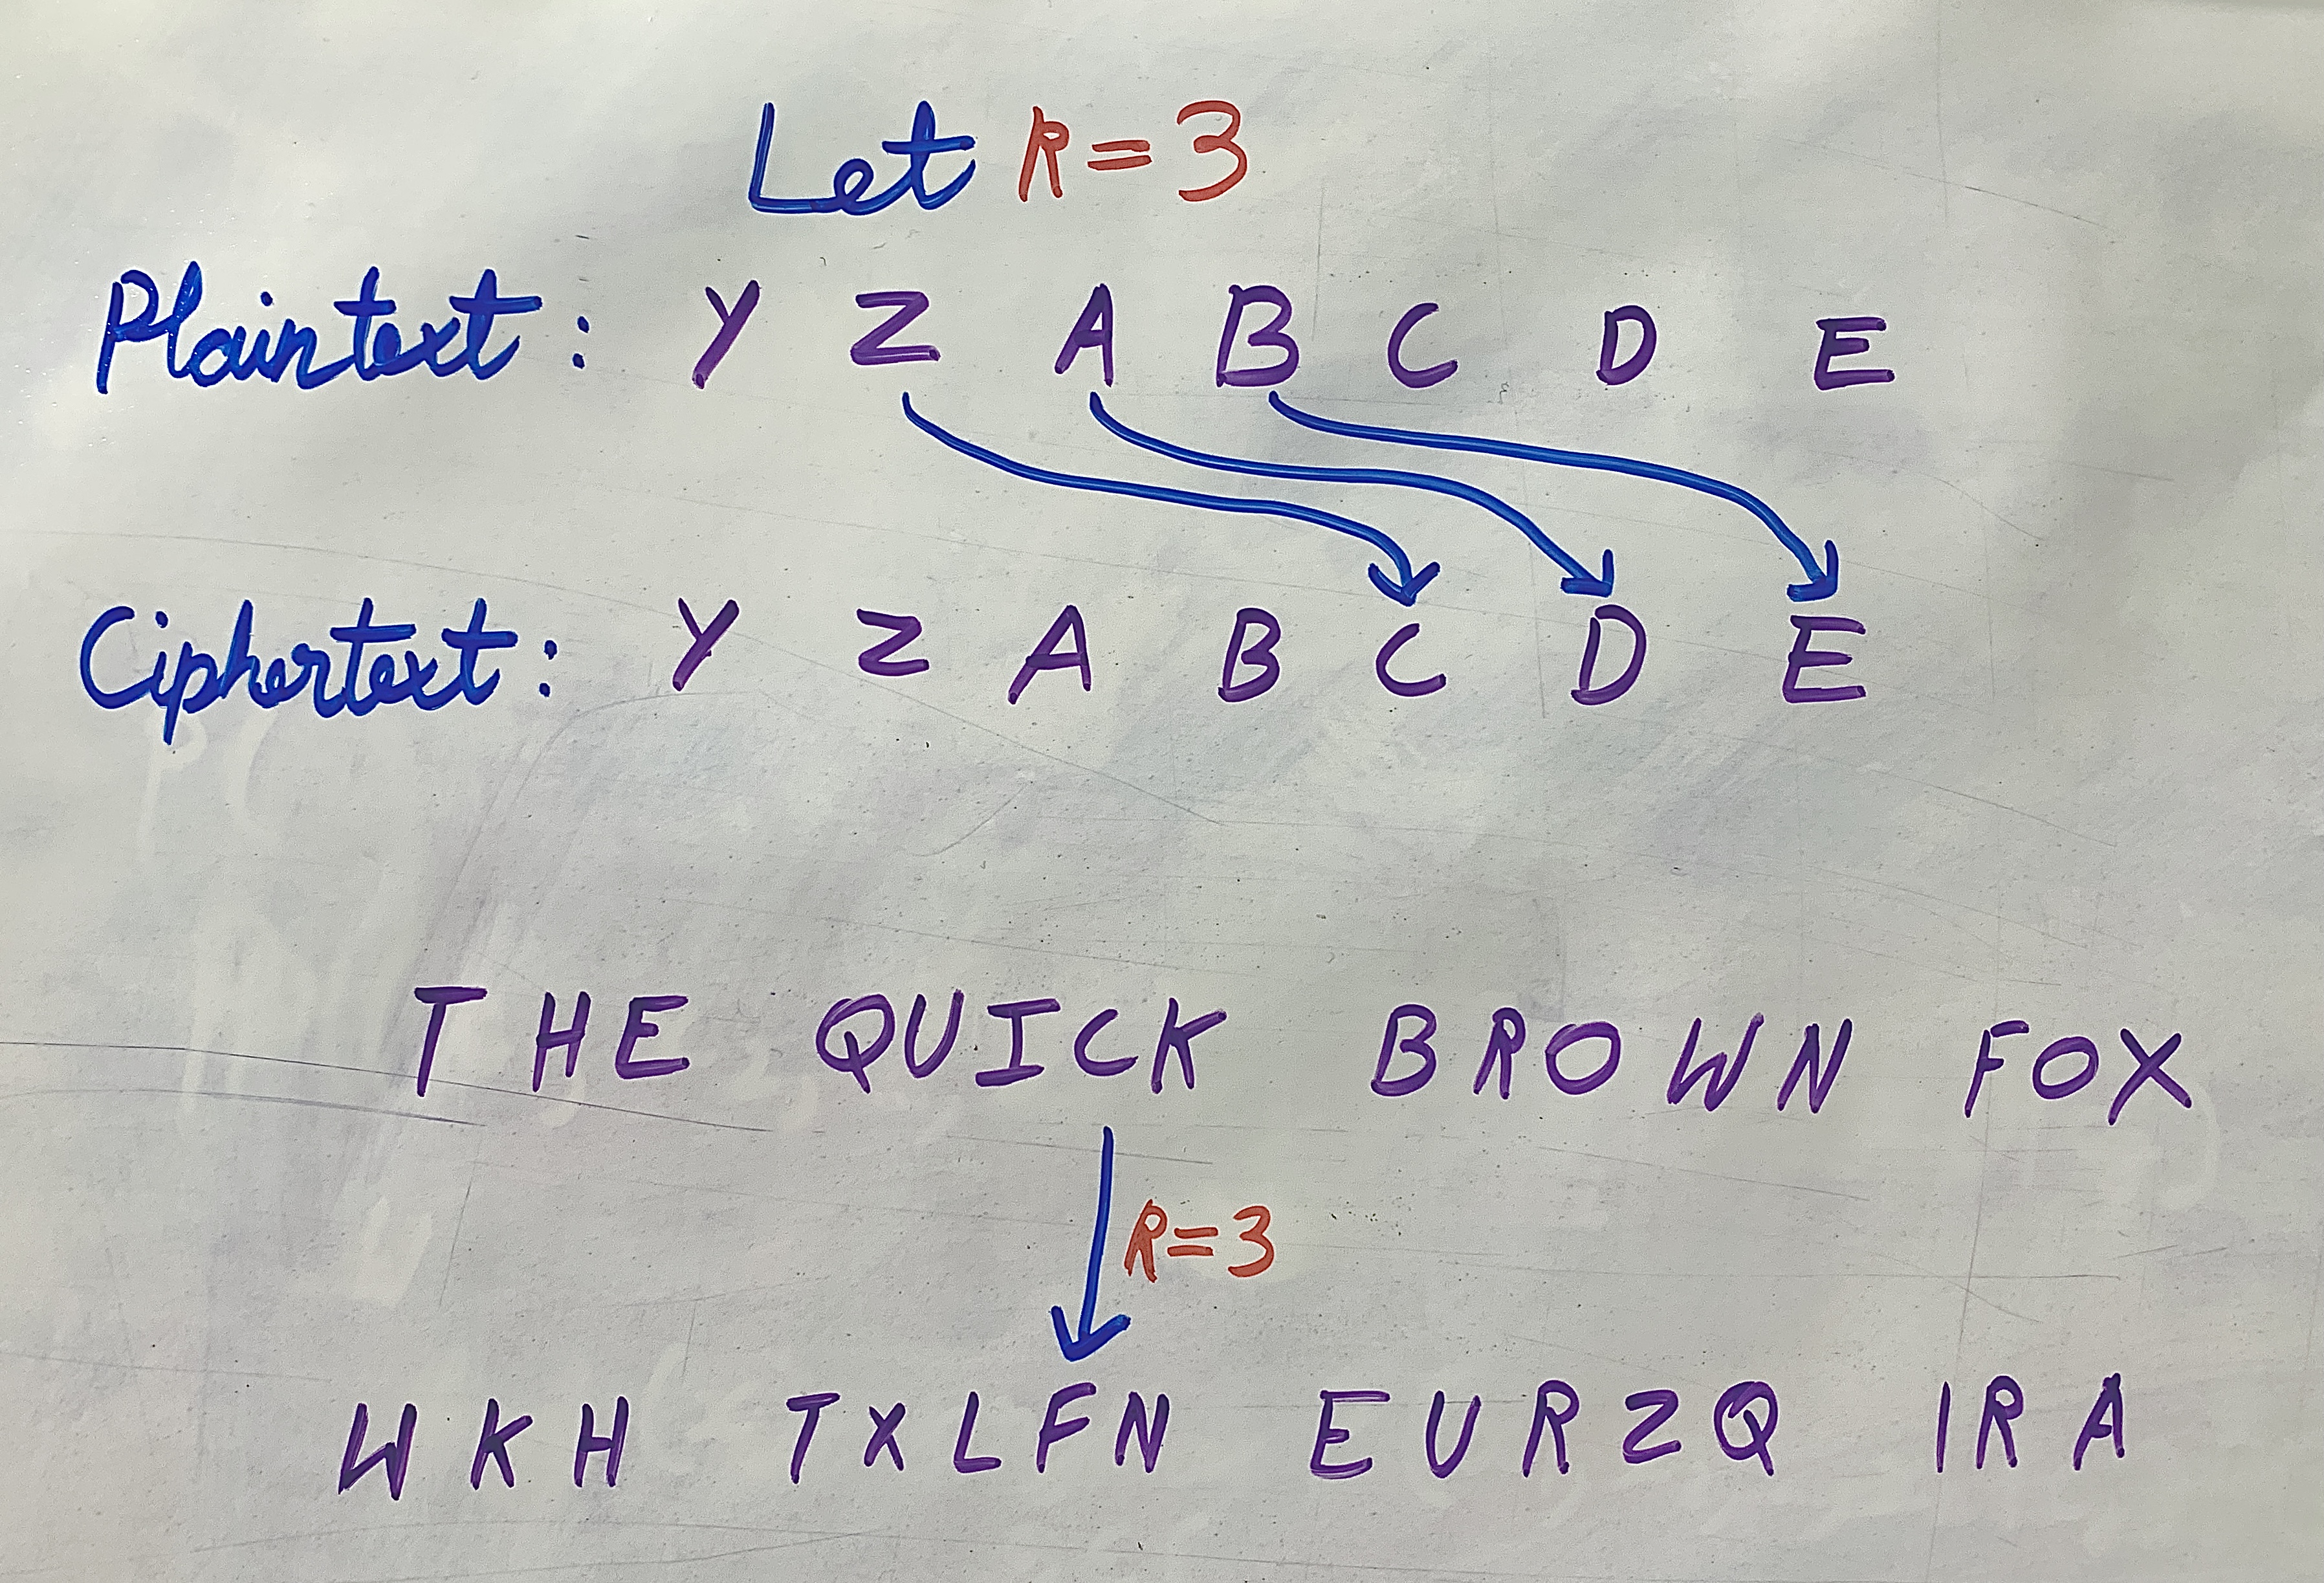 Let R=3
Plaintext: Y Z A B C D E
Ciphertext: Y Z A B C D E
THE QUICK BROWN FOX
R=3
WKH TXLFN EURZQ IRA